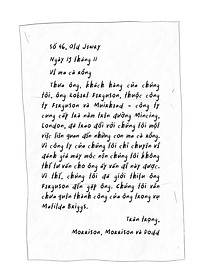 Số 46, Old Jewry
Ngày 19 tháng 11
Về ma cà rồng
Thưa ông, khách hàng của chúng
tôi, ông Robert Ferguson, thuộc công
ty Ferguson và Muirhead - công ty
cung cấp trà nằm trên đường Mincing,
London, đã trao đổi với chúng tôi một
việc liên quan đến những con ma cà rồng.
Vì công ty của chúng tôi chỉ chuyên về
đánh giá máy móc nên chúng tôi không
thể tư vấn cho ông ấy vấn đề này được.
Vì thế, chúng tôi đã giới thiệu ông
Ferguson đến gặp ông. Chúng tôi vẫn
chưa quên thành công của ông trong vụ
Matilda Briggs.
Trân trọng,
Morrison, Morrison và Dodd